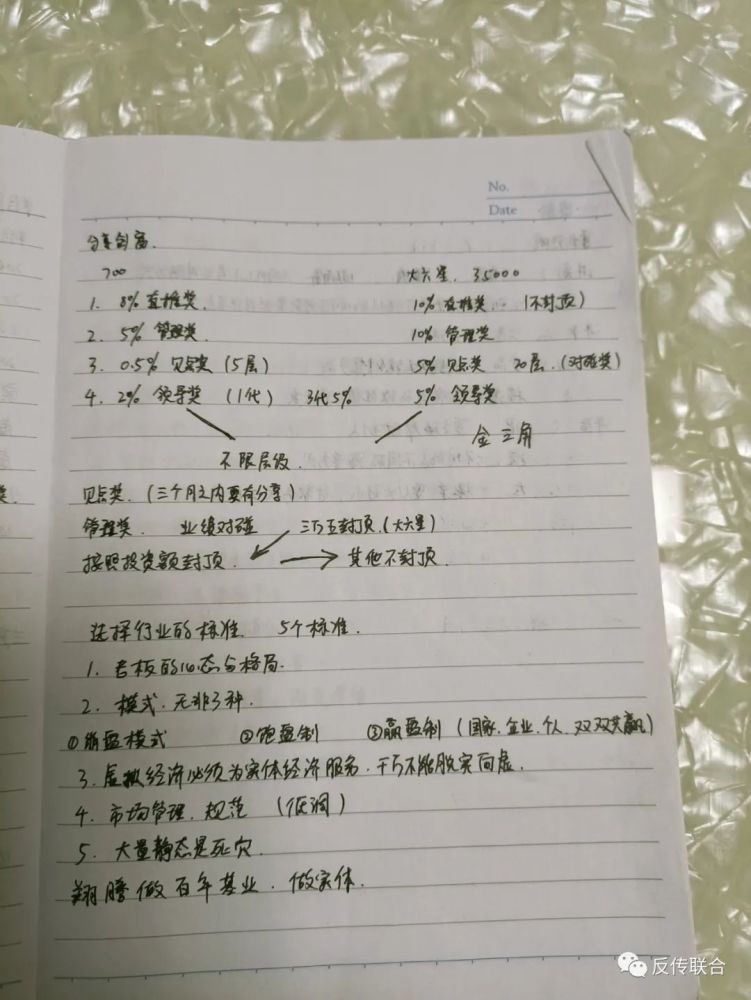 No.
Date
分享创富.
700 大六星. 35000
1. 8% 直推奖 10% 直推奖. (不封顶)
2. 5% 管理奖. 10% 管理奖
3. 0.5% 见点奖 (5层) 5% 见点奖 20层. (对碰奖)
4. 2% 领导奖 (1代) 3代5% 5% 领导奖
金三角
不限层级.
见点奖. (三个月之内要有分享)
管理奖. 业绩对碰 三万五封顶. (大六星)
按照投资额封顶. 其他不封顶.
选择行业的标准. 5个标准.
1. 老板的心态与格局.
2. 模式. 无非3种.
①崩盘模式 ②跑盘制 ③赢盈制 (国家. 企业. 个人. 双双共赢)
3. 虚拟经济必须为实体经济服务. 千万不能脱实向虚.
4. 市场管理. 规范 (低调)
5. 大量静态是死穴.
翔腾做百年基业. 做实体.
反传联合